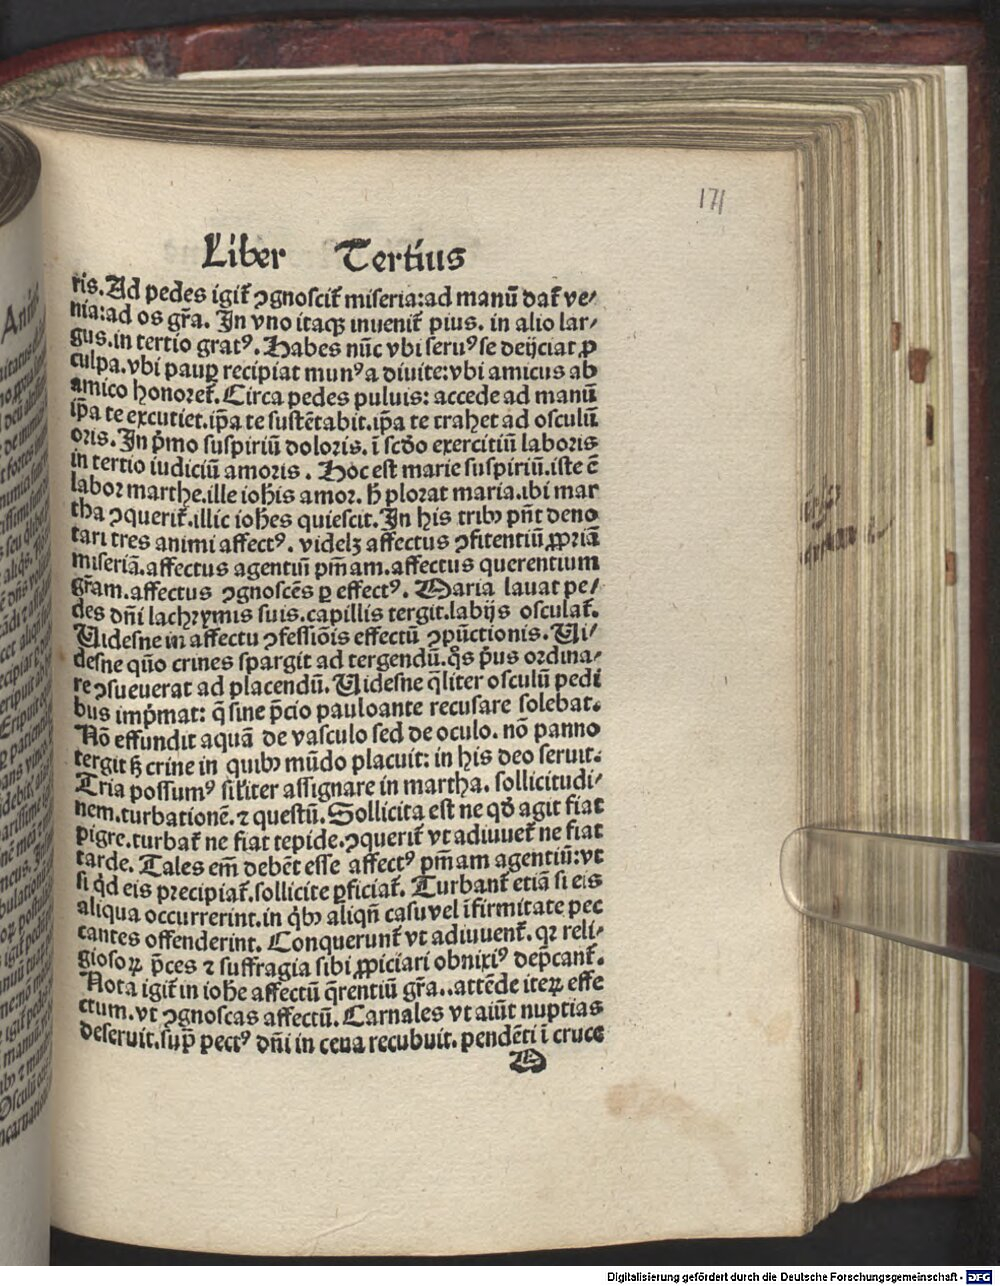 171
Liber Tertius
ris. Ad pedes igit̃ ꝯgnoscit̃ miseria: ad manū dat̃ ve⸗
nia: ad os gr̃a. In vno itaqꝫ inuenit̃ pius. in alio lar⸗
gus. in tertio gratꝰ. Habes nūc vbi seruꝰ se deijciat ꝓ
culpa. vbi paupꝑ recipiat munꝰ a diuite: vbi amicus ab
amico honoret̃. Circa pedes puluis: accede ad manū
ip̃a te excutiet. ip̃a te sustētabit. ip̃a te trahet ad osculū
oris. In p̃mo suspiriū doloris. ī scd̃o exercitiū laboris
in tertio iudiciū amoris. Hoc est marie suspiriū. iste ē
labor marthe. ille ioh̃is amor. h̃ plorat maria. ibi mar
tha ꝯquerit̃. illic ioh̃es quiescit. In his tribꝰ pñt deno
tari tres animi affectꝰ. videlꝫ affectus ꝯfitentiū ꝓpriā
miseriā. affectus agentiū pm̃am. affectus querentium
gr̃am. affectus ꝯgnoscēs ꝑ effectꝰ. Maria lauat pe⸗
des dñi lachrymis suis. capillis tergit. labijs osculat̃.
Uidesne in affectu ꝯfessiōis effectū ꝯpūctionis. Ui⸗
desne quō crines spargit ad tergendū. q̃s p̃us ordina⸗
re ꝯsueuerat ad placendū. Uidesne q̃liter osculū pedi
bus imp̃mat: q̃ sine p̃cio pauloante recusare solebat.
Nō effundit aquā de vasculo sed de oculo. nō panno
tergit sꝫ crine in quibꝰ mūdo placuit: in his deo seruit.
Tria possumꝰ sil̃iter assignare in martha. sollicitudi⸗
nem. turbationē. ⁊ questū. Sollicita est ne qd̃ agit fiat
pigre. turbat̃ ne fiat tepide. ꝯquerit̃ vt adiuuet̃ ne fiat
tarde. Tales em̃ debēt esse affectꝰ pm̃am agentiū: vt
si qd̃ eis precipiat̃. sollicite ꝑficiat̃. Turbant̃ etiā si eis
aliqua occurrerint. in q̃bꝰ aliqñ casu vel īfirmitate pec
cantes offenderint. Conquerunt̃ vt adiuuent̃. qꝛ reli⸗
giosoꝝ p̃ces ⁊ suffragia sibi ꝓpiciari obnixiꝰ dep̃cant̃.
Nota igit̃ in ioh̃e affectū q̃rentiū gr̃a.. attēde iteꝝ effe
ctum. vt ꝯgnoscas affectū. Carnales vt aiūt nuptias
deseruit. sup̃ pectꝰ dñi in cena recubuit. pendēti ī cruce
M
Digitalisierung gefördert durch die Deutsche Forschungsgemeinschaft - DFG